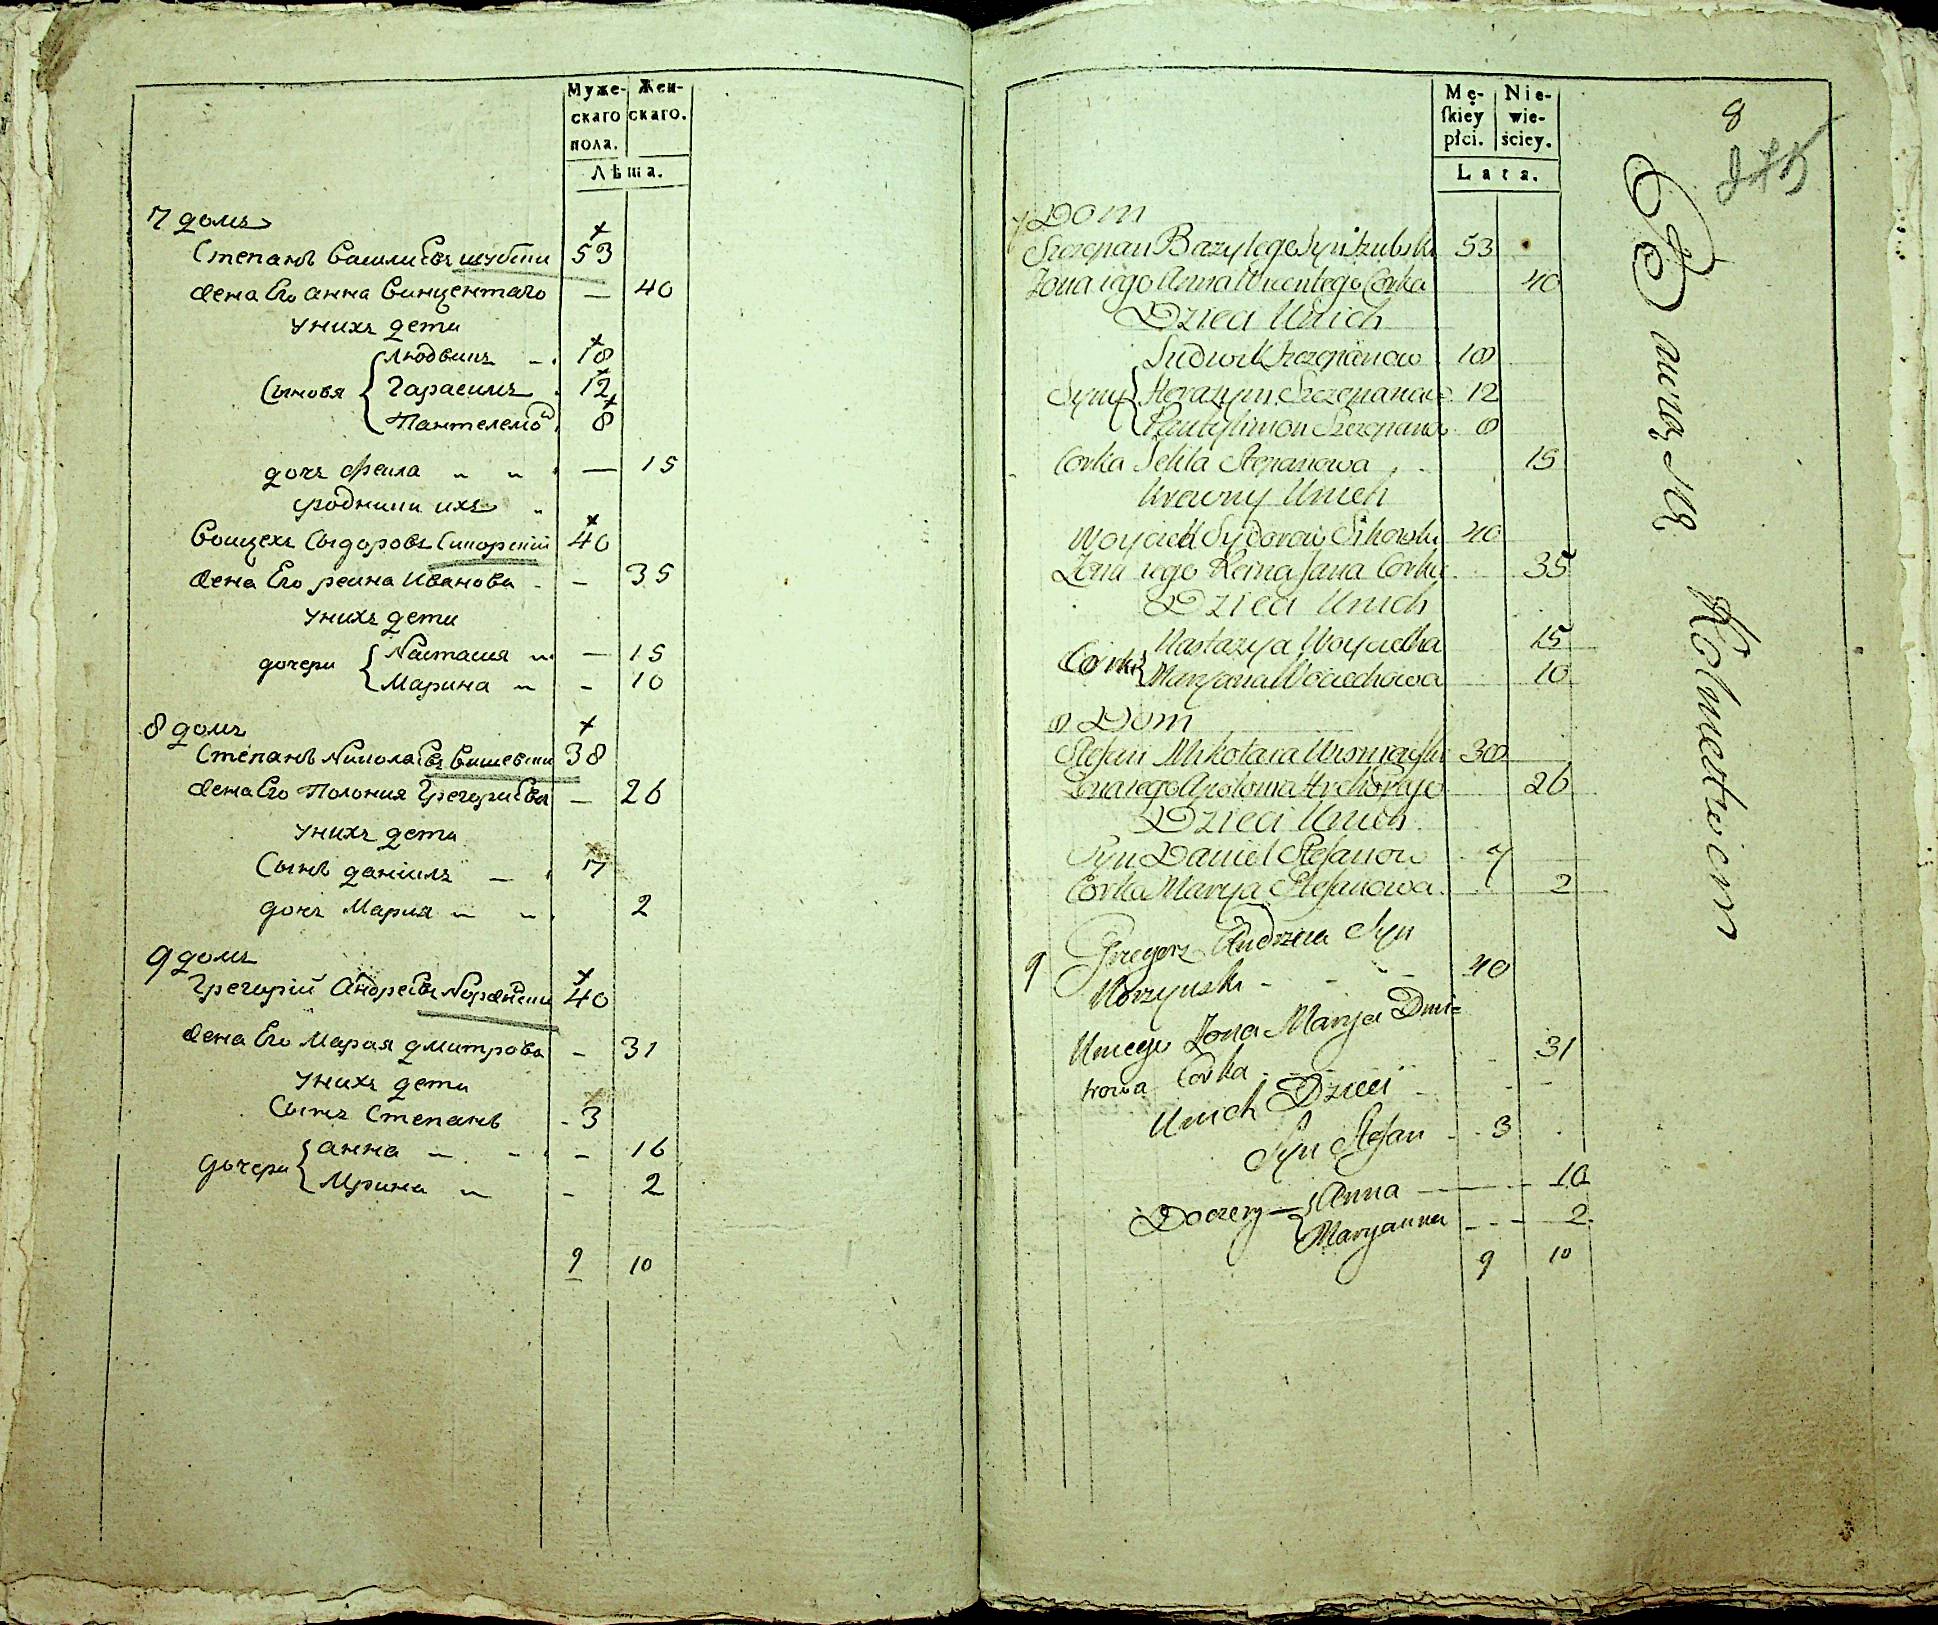 Муже-
скаго
пола.
Жен-
скаго.
Лѣта.
7 домъ
Степанъ Василиевъ шубски 53
жена Его анна Винцентаго — 40
Унихъ дети
Сыновя
людвикъ 18
Гарасимъ 12
Пантелемо 8
дочъ Феила — 15
Войцехъ Сыдоровъ Сикорский 40
жена Его реина Иванова — 35
Унихъ дети
дочери
Настасия — 15
Марина — 10
8 домъ
Степанъ Николаевъ 38
жена Его Полония Григориева — 26
Унихъ дети
Сынъ даниилъ 7
дочъ Мария 2
9 домъ
Григорий Андреевъ 40
жена Его Мария дмитрова — 31
Унихъ дети
Сынъ Степанъ 3
дочери
анна — 16
Мрина — 2
9 10
Mę-
ſkiey
płci.
Nie-
wie-
ściey.
Lata.
8
7 Dom
Szczepan Bazylego Syn Szubski 53
Żona iego Anna Wincentego Corka 40
Dzieci Unich
Syny
Ludwik Szczepanow 18
Herazym Szczepanow 12
Pantylimon Szczepanow 8
Corka Felila Stepanowa 15
Krewny Unich
Woyciech Sydorow Sikorski 40
Żona iego Reina Jana Corka 35
Dzieci Unich
Corki
Nastazya Woyciecha 15
Maryana Wociechowa 10
8 Dom
Stefan Mikołaia 38
Żona iego Apolonia 26
Dzieci Unich
Syn Daniel Stefanow 7
Corka Marya Stefanowa 2
9 Grzegorz Andrzeia Syn
Korzynski - 40
Uniego Żona Marya Dmi-
trowa Corka 31
Unich Dzieci
Syn Stefan 3
Doczery
Anna 16
Maryanna 2
9 10